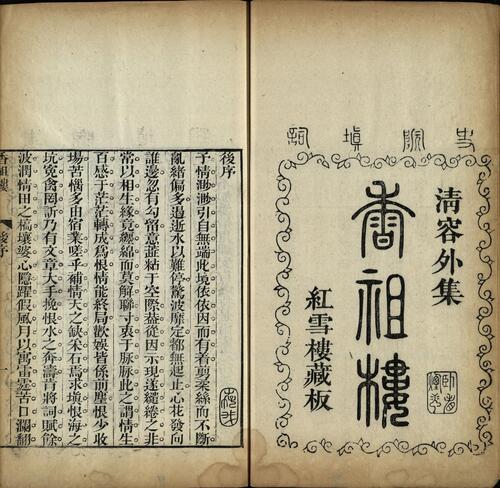 史院填詞
清容外集
香祖樓
紅雪樓藏板
後序
予情渺渺引自無端此境依依因而有着剪柔絲而不斷
亂緒偏多過逝水以難停驚波靡定都無起止心花發向
誰邊忽有勾留意蕋粘于空際益從因示現遂繾綣之非
常以相生緣竟纏綿而莫解聯寸衷于脉脉此之謂情生
百感于茫茫轉成爲恨情能終局歡娛皆係前塵恨少收
場苦惱多由宿業嗟乎補情天之缺朱石焉求塡恨海之
坑寃禽罔訴乃有文章大手挽恨水之奔濤音將詞賦餘
波潤情田之槁壤婆心隱躍假風月以寓雷霆苦口瀾翻
香祖樓 後序 一